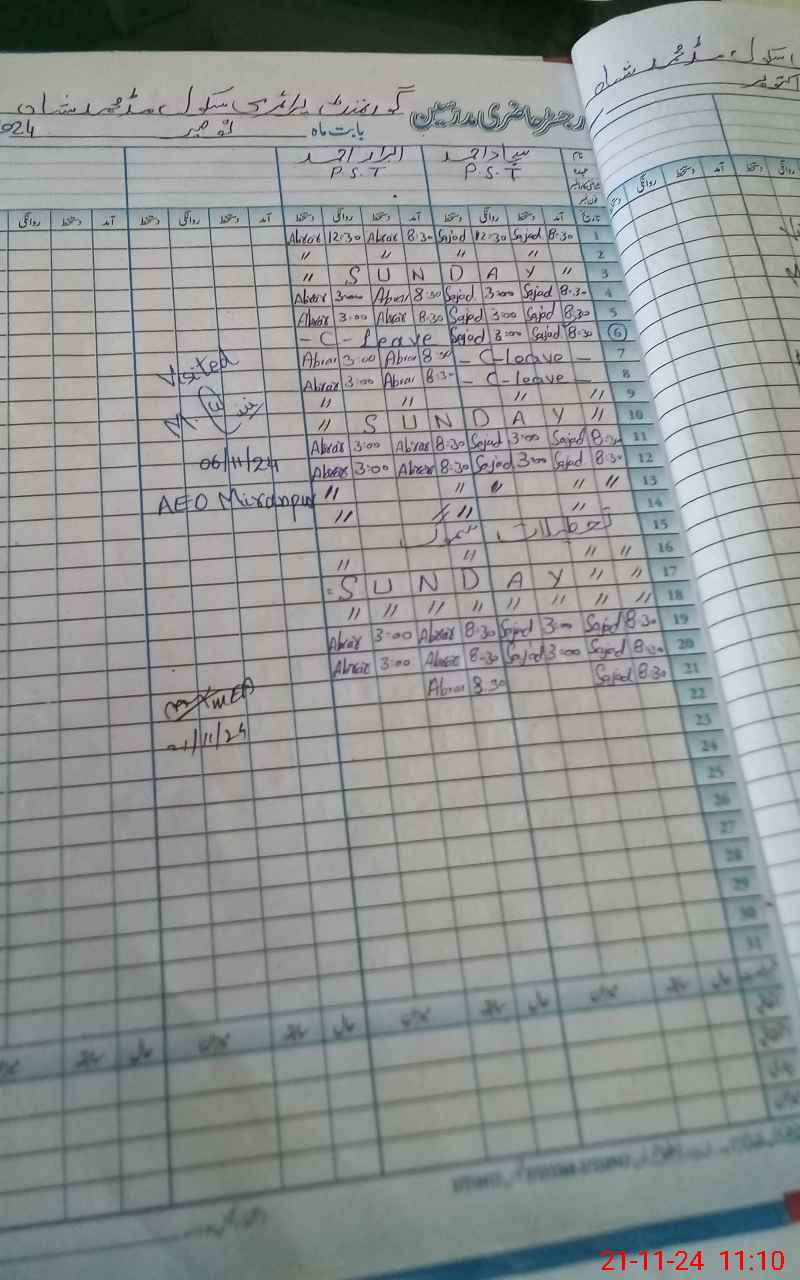 گورنمنٹ پرائمری سکول
رجسٹر حاضری مدرسین
بابت ماہ نومبر 2024
سجاد احمد
P.S.T
ابرار احمد
P.S.T
تاریخ آمد دستخط روانگی دستخط آمد دستخط روانگی دستخط آمد دستخط روانگی دستخط آمد دستخط روانگی
Abrar 12:30 Abrar 8:30 Sajad 12:30 Sajad 8:30 1
" " " " 2
" S U N D A Y " 3
Abrar 3:00 Abrar 8:30 Sajad 3:00 Sajad 8:30 4
Abrar 3:00 Abrar 8:30 Sajad 3:00 Sajad 8:30 5
- C - Leave Sajad 3:00 Sajad 8:30 6
Abrar 3:00 Abrar 8:30 - C-leave - 7
Abrar 3:00 Abrar 8:30 - C-leave - 8
" " " " 9
" S U N D A Y " 10
Abrar 3:00 Abrar 8:30 Sajad 3:00 Sajad 8:30 11
Abrar 3:00 Abrar 8:30 Sajad 3:00 Sajad 8:30 12
" " " " " 13
" " " " 14
تعطیلات سموگ 15
" " " " 16
S U N D A Y " " 17
" " " " " " " " 18
Abrar 3:00 Abrar 8:30 Sajad 3:00 Sajad 8:30 19
Abrar 3:00 Abrar 8:30 Sajad 3:00 Sajad 8:30 20
Abrar 8:30 Sajad 8:30 21
22
23
24
25
26
27
28
29
30
31
Visited
06/11/24
AEO Miranpur
21/11/24
21-11-24 11:10